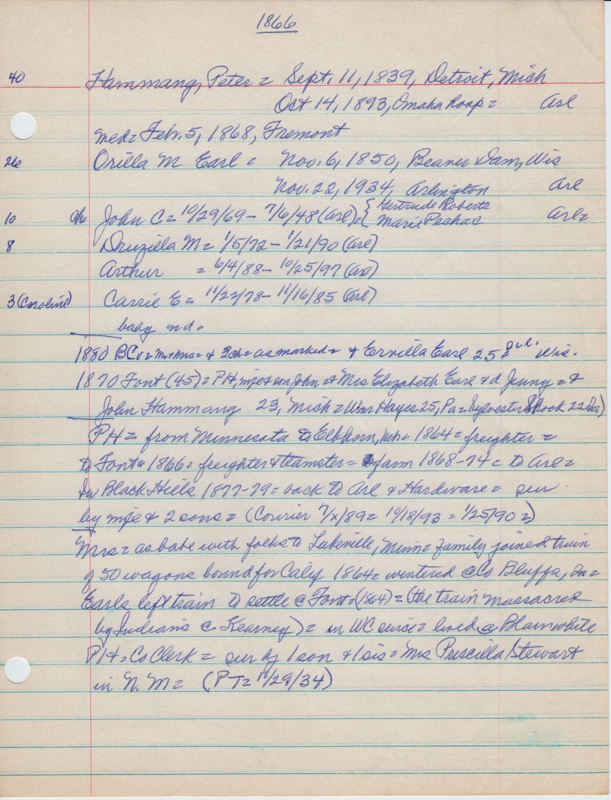 1866
40 Hammang, Peter = Sept. 11, 1839, Detroit, Mich
Oct 14, 1893, Omaha Hosp = Arl
med = Feb. 5, 1868, Fremont
26 Orilla M Earl = Nov. 6, 1850, Beaver Dam, Wis
Nov. 22, 1934, Arlington Arl
10 ch= John C = 10/29/69 - 7/6/48 (Arl) = { Gertrude Roberts
Marie Pechac Arl =
8 Druzilla M = 1/5/72 - 1/21/90 (Arl)
Arthur = 6/4/88 - 10/25/97 (Arl)
3 (Caroline) Carrie E = 11/22/78 - 11/16/85 (Arl)
baby nd.
1880 BC = Mr Mrs = + 3 ch = as marked = + Ervilla Earl 25 = Wis.
1870 Font (45) = PH, wife & son John = + Mrs Elizabeth Earl & d Jenny = +
John Hammang 23, Mich = Wm Hayes 25, Pa = Sylvester Shook 22
PH = from Minnesota to Elkhorn, = 1864 = freighter =
to Font = 1866 = freighter & teamster = farm 1868-74 = to Arl =
in Black Hills 1877-79 = back to Arl & Hardware = sur
by wife & 2 sons = (Courier 7/x/89 = 10/18/93 = 1/25/90 =)
Mrs = as babe with folks to Lakeville, Minn = family joined train
of 50 wagons bound for Caly 1864 = wintered @ Co Bluffs, Ia =
Earls left train to settle @ Font = (1864) = (the train massacred
by Indians @ Kearney) = in WC since = lived @ Blair while
PH = Co Clerk = sur by 1 son & 1 sis = Mrs Priscilla Stewart
in N. M = (PT = 11/29/34)